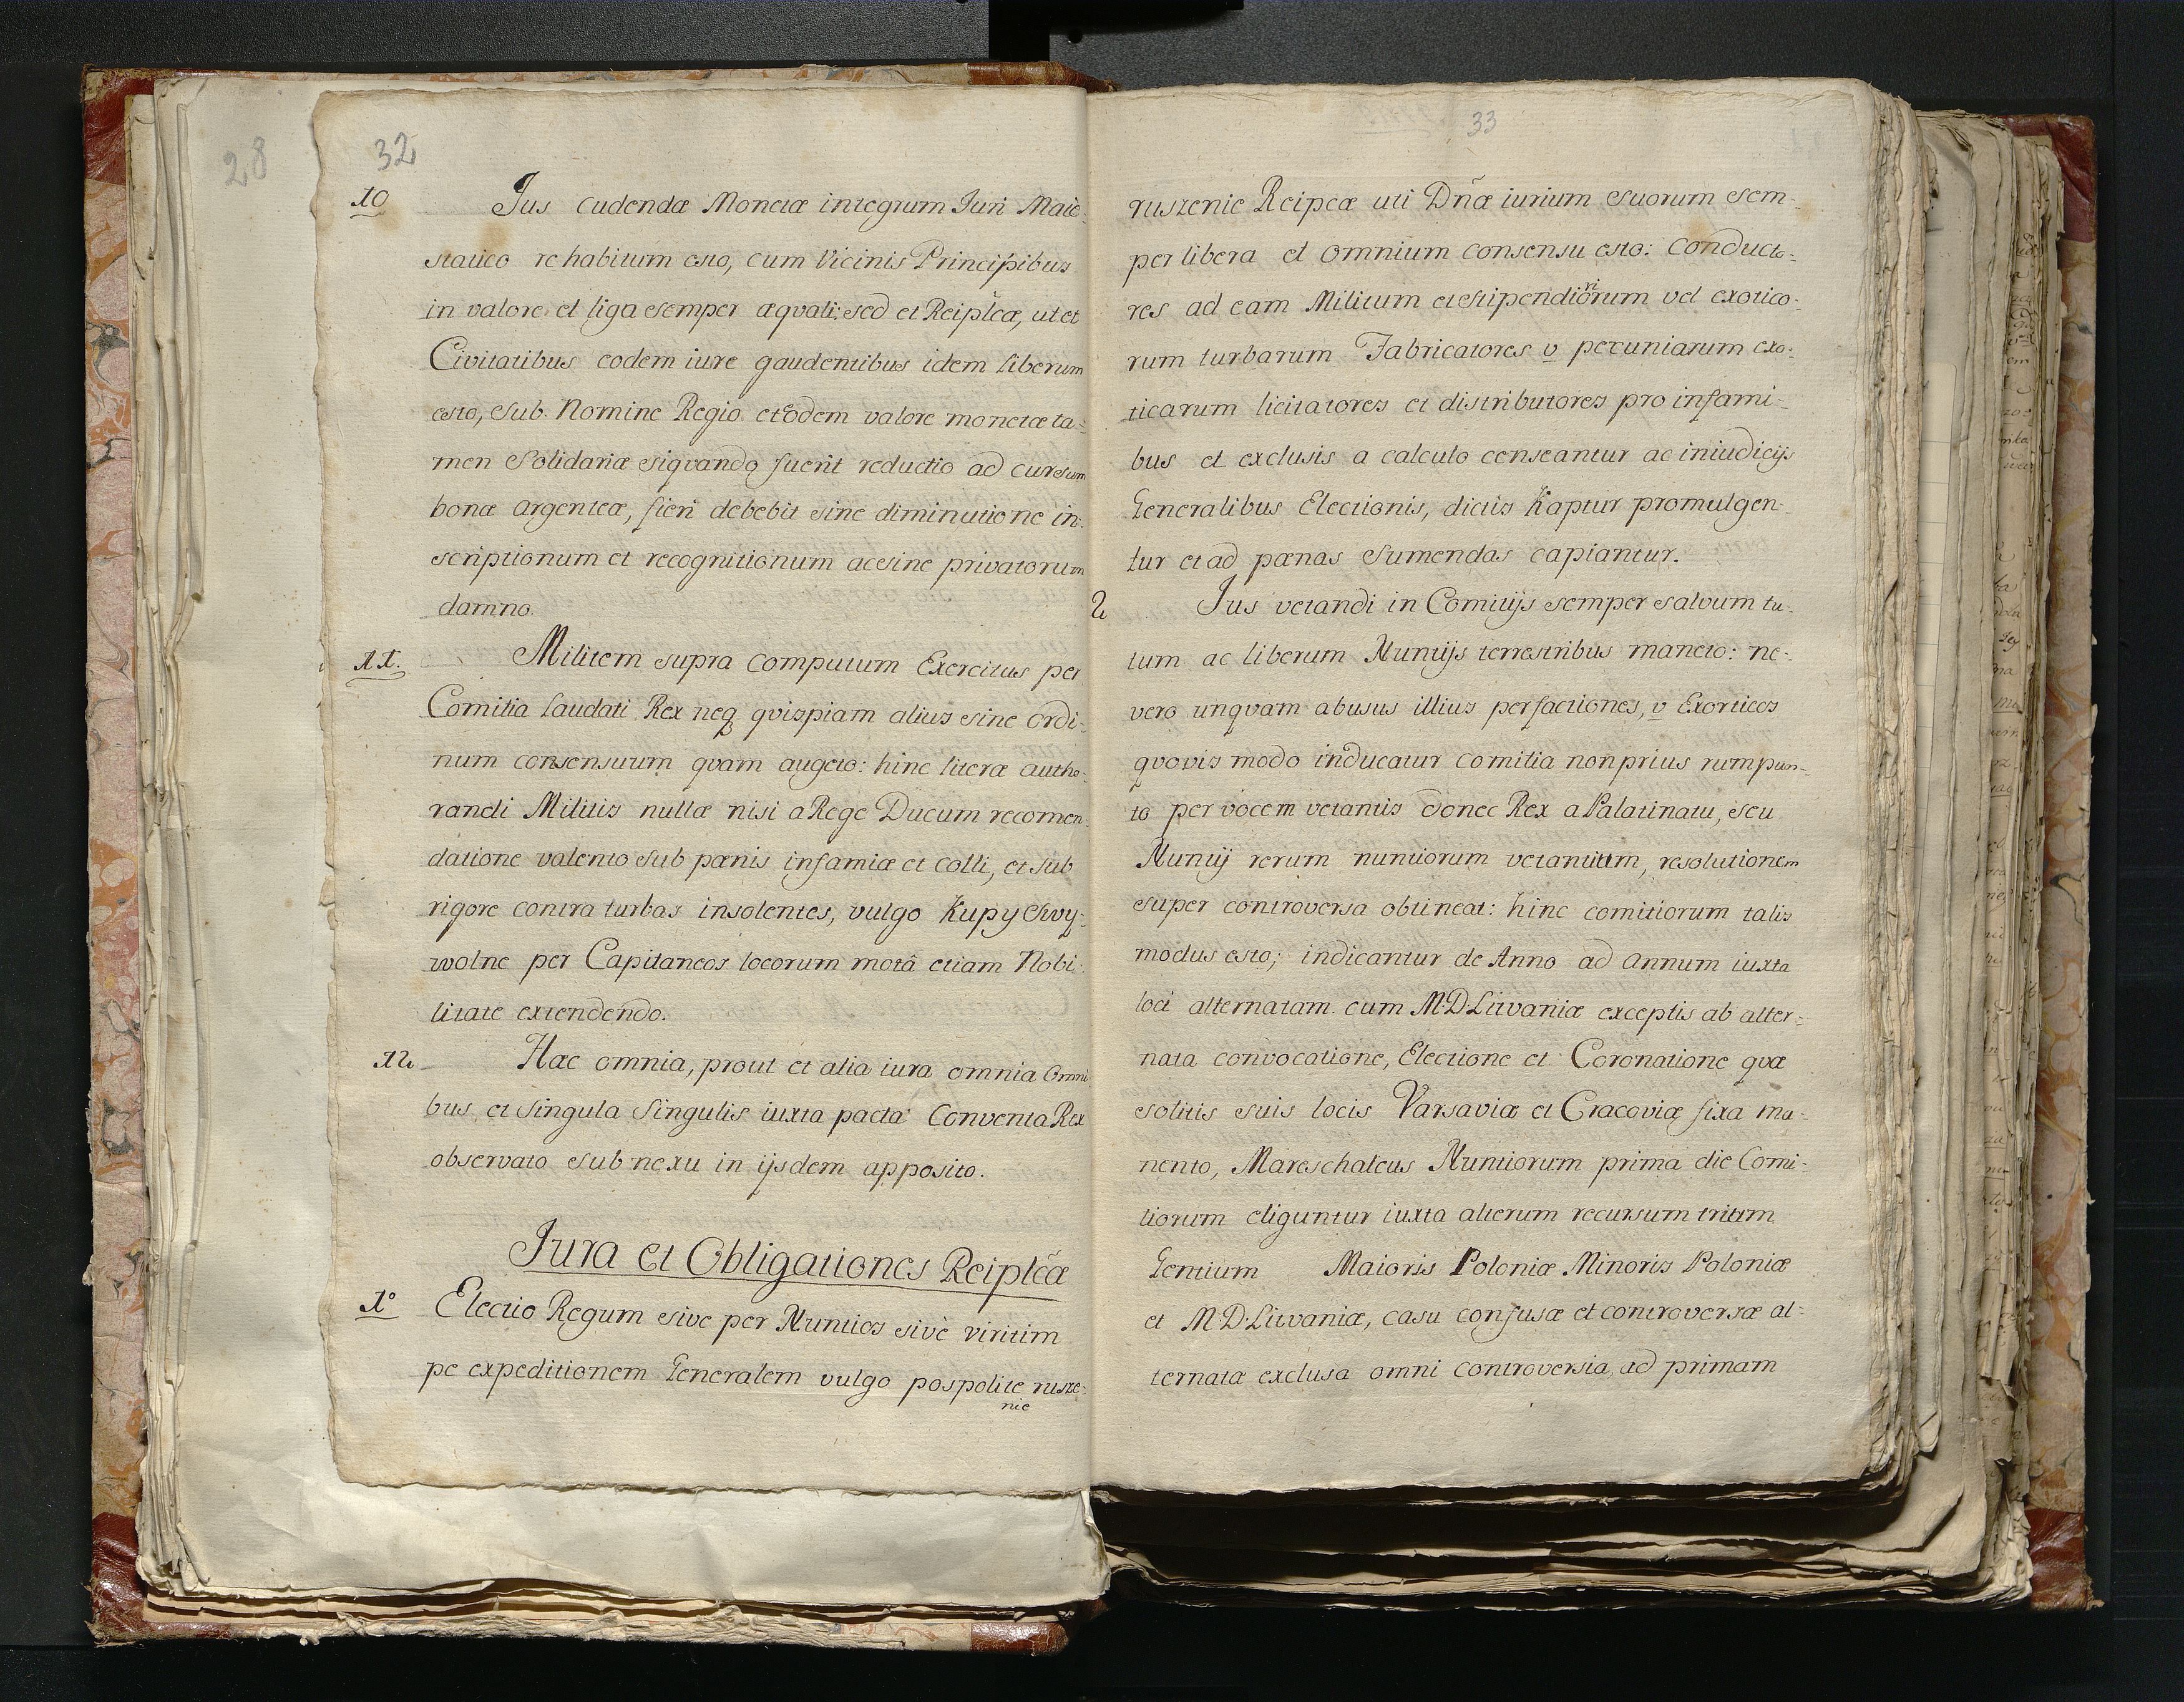 28
32
10
Jus cudendæ Monetæ integrum Juri Maie-
statico rehabitum esto, cum Vicinis Principibus
in valore et liga semper æqvali: sed et Reiplcæ, ut et
Civitatibus eodem iure gaudentibus idem liberum
esto, sub Nomine Regio et Eodem valore monetæ ta-
men Solidariæ siqvando fuerit reductio ad cursum
bonæ argenteæ, fieri debebit sine diminutione in-
scriptionum et recognitionum ac sine privatorum
damno.
11.
Militem supra computum Exercitus per
Comitia laudati Rex neq qvispiam alius sine Ordi-
num consensuum qvam augeto: hinc literæ autho-
randi Militis nullæ nisi a Rege Ducum recomen-
datione valento sub pœnis infamiæ et colli, et sub
rigore contra turbas insolentes, vulgo Kupy Swy-
wolne per Capitaneos locorum motâ etiam Nobi-
litate extendendo.
12
Hæc omnia, prout et alia iura omnia Omni
bus et Singula Singulis iuxta pacta Conventa Rex
observato sub nexu in ijsdem apposito.
Jura et Obligationes Reiplcæ
1º
Electio Regum sive per Nuntios sive viritim
pe expeditionem Generalem vulgo pospolite rusze-
nie
33
ruszenie Reipcæ uti Dn̄æ iurium suorum sem-
per libera et omnium consensu esto: Conducto-
res ad eam Militum et stipendiorum vel exotico-
rum turbarum Fabricatores v pecuniarum exo-
ticarum licitatores et distributores pro infami-
bus et exclusis a calculo censeantur ac in iudicijs
Generalibus Electionis, dictis Kaptur promulgen-
tur et ad pœnas sumendas capiantur.
2
Jus vetandi in Comitijs semper salvum tu-
tum ac liberum Nuntijs terrestribus maneto: ne-
vero unqvam abusus illius per factiones, v Exorticos
qvovis modo inducatur comitia non prius rumpun-
to per vocem vetantis donec Rex a Palatinatu, seu
Nuntij rerum nuntiorum vetantium, resolutionem
super controversa obtineat: hinc comitiorum talis
modus esto; indicantur de Anno ad annum iuxta
loci alternatam cum M.D.Litvaniæ exceptis ab alter-
nata convocatione, Electione et Coronatione qvæ
solitis suis locis Varsaviæ et Cracoviæ fixa ma-
nento, Mareschalcus Nuntiorum prima die Comi-
tiorum eliguntur iuxta alterum recursum trium
Gentium Maioris Poloniæ Minoris Poloniæ
et M.D.Litvaniæ, casu confusæ et controversæ al-
ternatæ exclusa omni controversia, ad primam